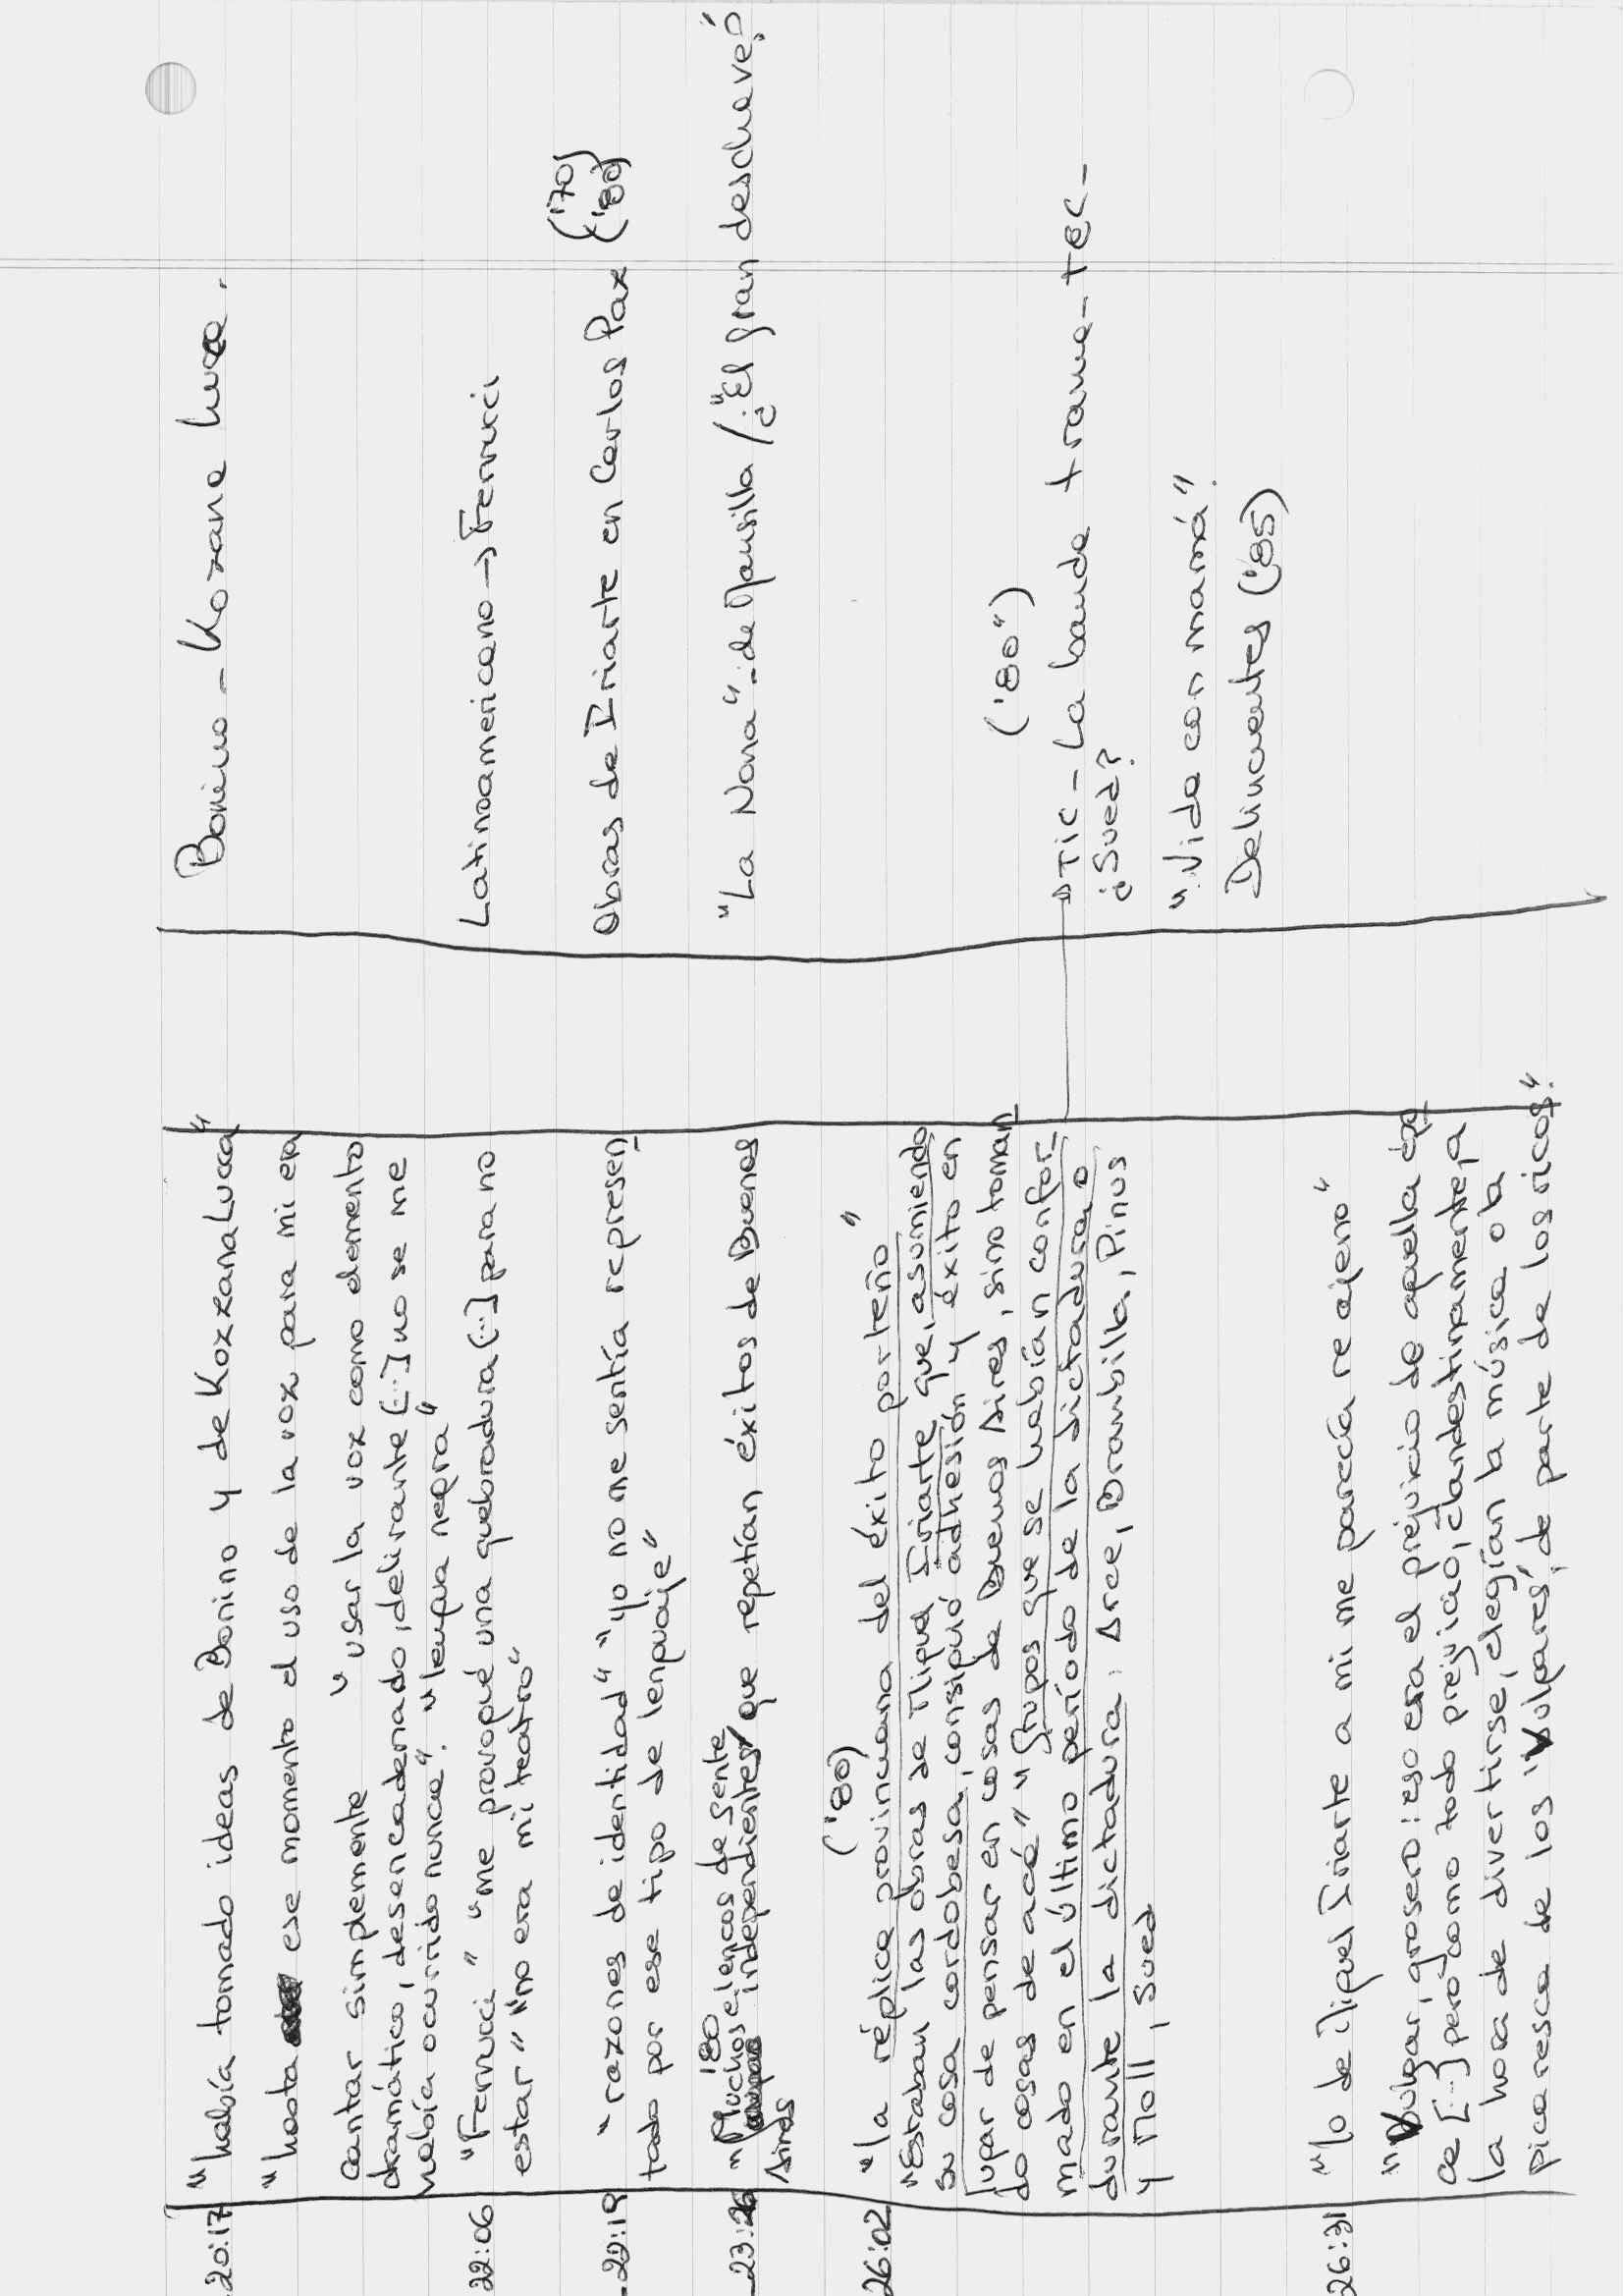 20:17 "había tomado ideas de Bonino y de KozzanaLucca"
"hasta ese momento el uso de la voz para mi era
cantar simplemente "usar la voz como elemento
dramático, desencadenado, delirante [...] no se me
había ocurrido nunca". "lengua negra"
22:06 "Ferrucci" "me provoqué una quebradura [...] para no
estar" "no era mi teatro"
22:19 "razones de identidad" "yo no me sentía represen
tado por ese tipo de lenguaje"
'80
23:26 "Muchos elencos de gente
independientes que repetían éxitos de Buenos
Aires
('80)
26:02 "la réplica provinciana del éxito porteño"
"Estaban las obras de Miguel Iriarte que, asumiendo
su cosa cordobesa, consiguió adhesión y éxito en
lugar de pensar en cosas de Buenos Aires, sino toman
do cosas de acá" "grupos que se habían confor-
mado en el último período de la dictadura o
durante la dictadura: Arce, Brambilla, Pinus
y Moll, Sued
26:31 "lo de Miguel Iriarte a mi me parecía re ajeno"
"Vulgar, grosero: eso era el prejuicio de aquella épo
ca [...] pero como todo prejuicio, clandestinamente, a
la hora de divertirse, elegían la música o la
picaresca de los "vulgares", de parte de los ricos".
Bonino - Kozana Luca.
Latinoamericano → Ferrucci
('70)
Obras de Iriarte en Carlos Paz ('80)
"La Nona" - de Mansilla / ¿"El gran deschave"?
('80")
→ TIC - La banda trama - TEC -
¿Sued?
"Vida con mamá".
Delincuentes ('85)